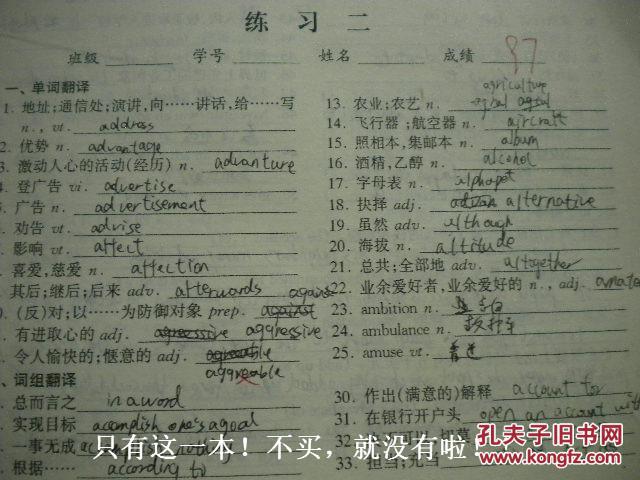 练 习 二
班级 学号 姓名 成绩 87
一、单词翻译
1. 地址;通信处;演讲,向……讲话,给……写
n., vt. address
2. 优势 n. advantage
3. 激动人心的活动(经历) n. advanture
4. 登广告 vi. advertise
5. 广告 n. advertisement
. 劝告 vt. advise
. 影响 vt. affect
. 喜爱,慈爱 n. affection
. 其后;继后;后来 adv. afterwords
against
. (反)对;以……为防御对象 prep. against
. 有进取心的 adj. aggressive
. 令人愉快的;惬意的 adj.
aggreable
、词组翻译
. 总而言之 in a word
. 实现目标 acomplish one's agoal
. 一事无成
. 根据…… according to
agriculture
13. 农业;农艺 n.
14. 飞行器;航空器 n. aircraft
15. 照相本,集邮本 n. album
16. 酒精,乙醇 n. alcohol
17. 字母表 n. alphapet
18. 抉择 adj. alternative
19. 虽然 adv. although
20. 海拔 n. altitude
21. 总共;全部地 adv. altogether
22. 业余爱好者,业余爱好的 n., adj. amate
23. ambition n.
24. ambulance n. 救护车
25. amuse vt.
30. 作出(满意的)解释 account for
31. 在银行开户头 open an account with
32.
33. 担当;充当
只有这一本！不买，就没有啦！！
孔夫子旧书网
www.kongfz.com